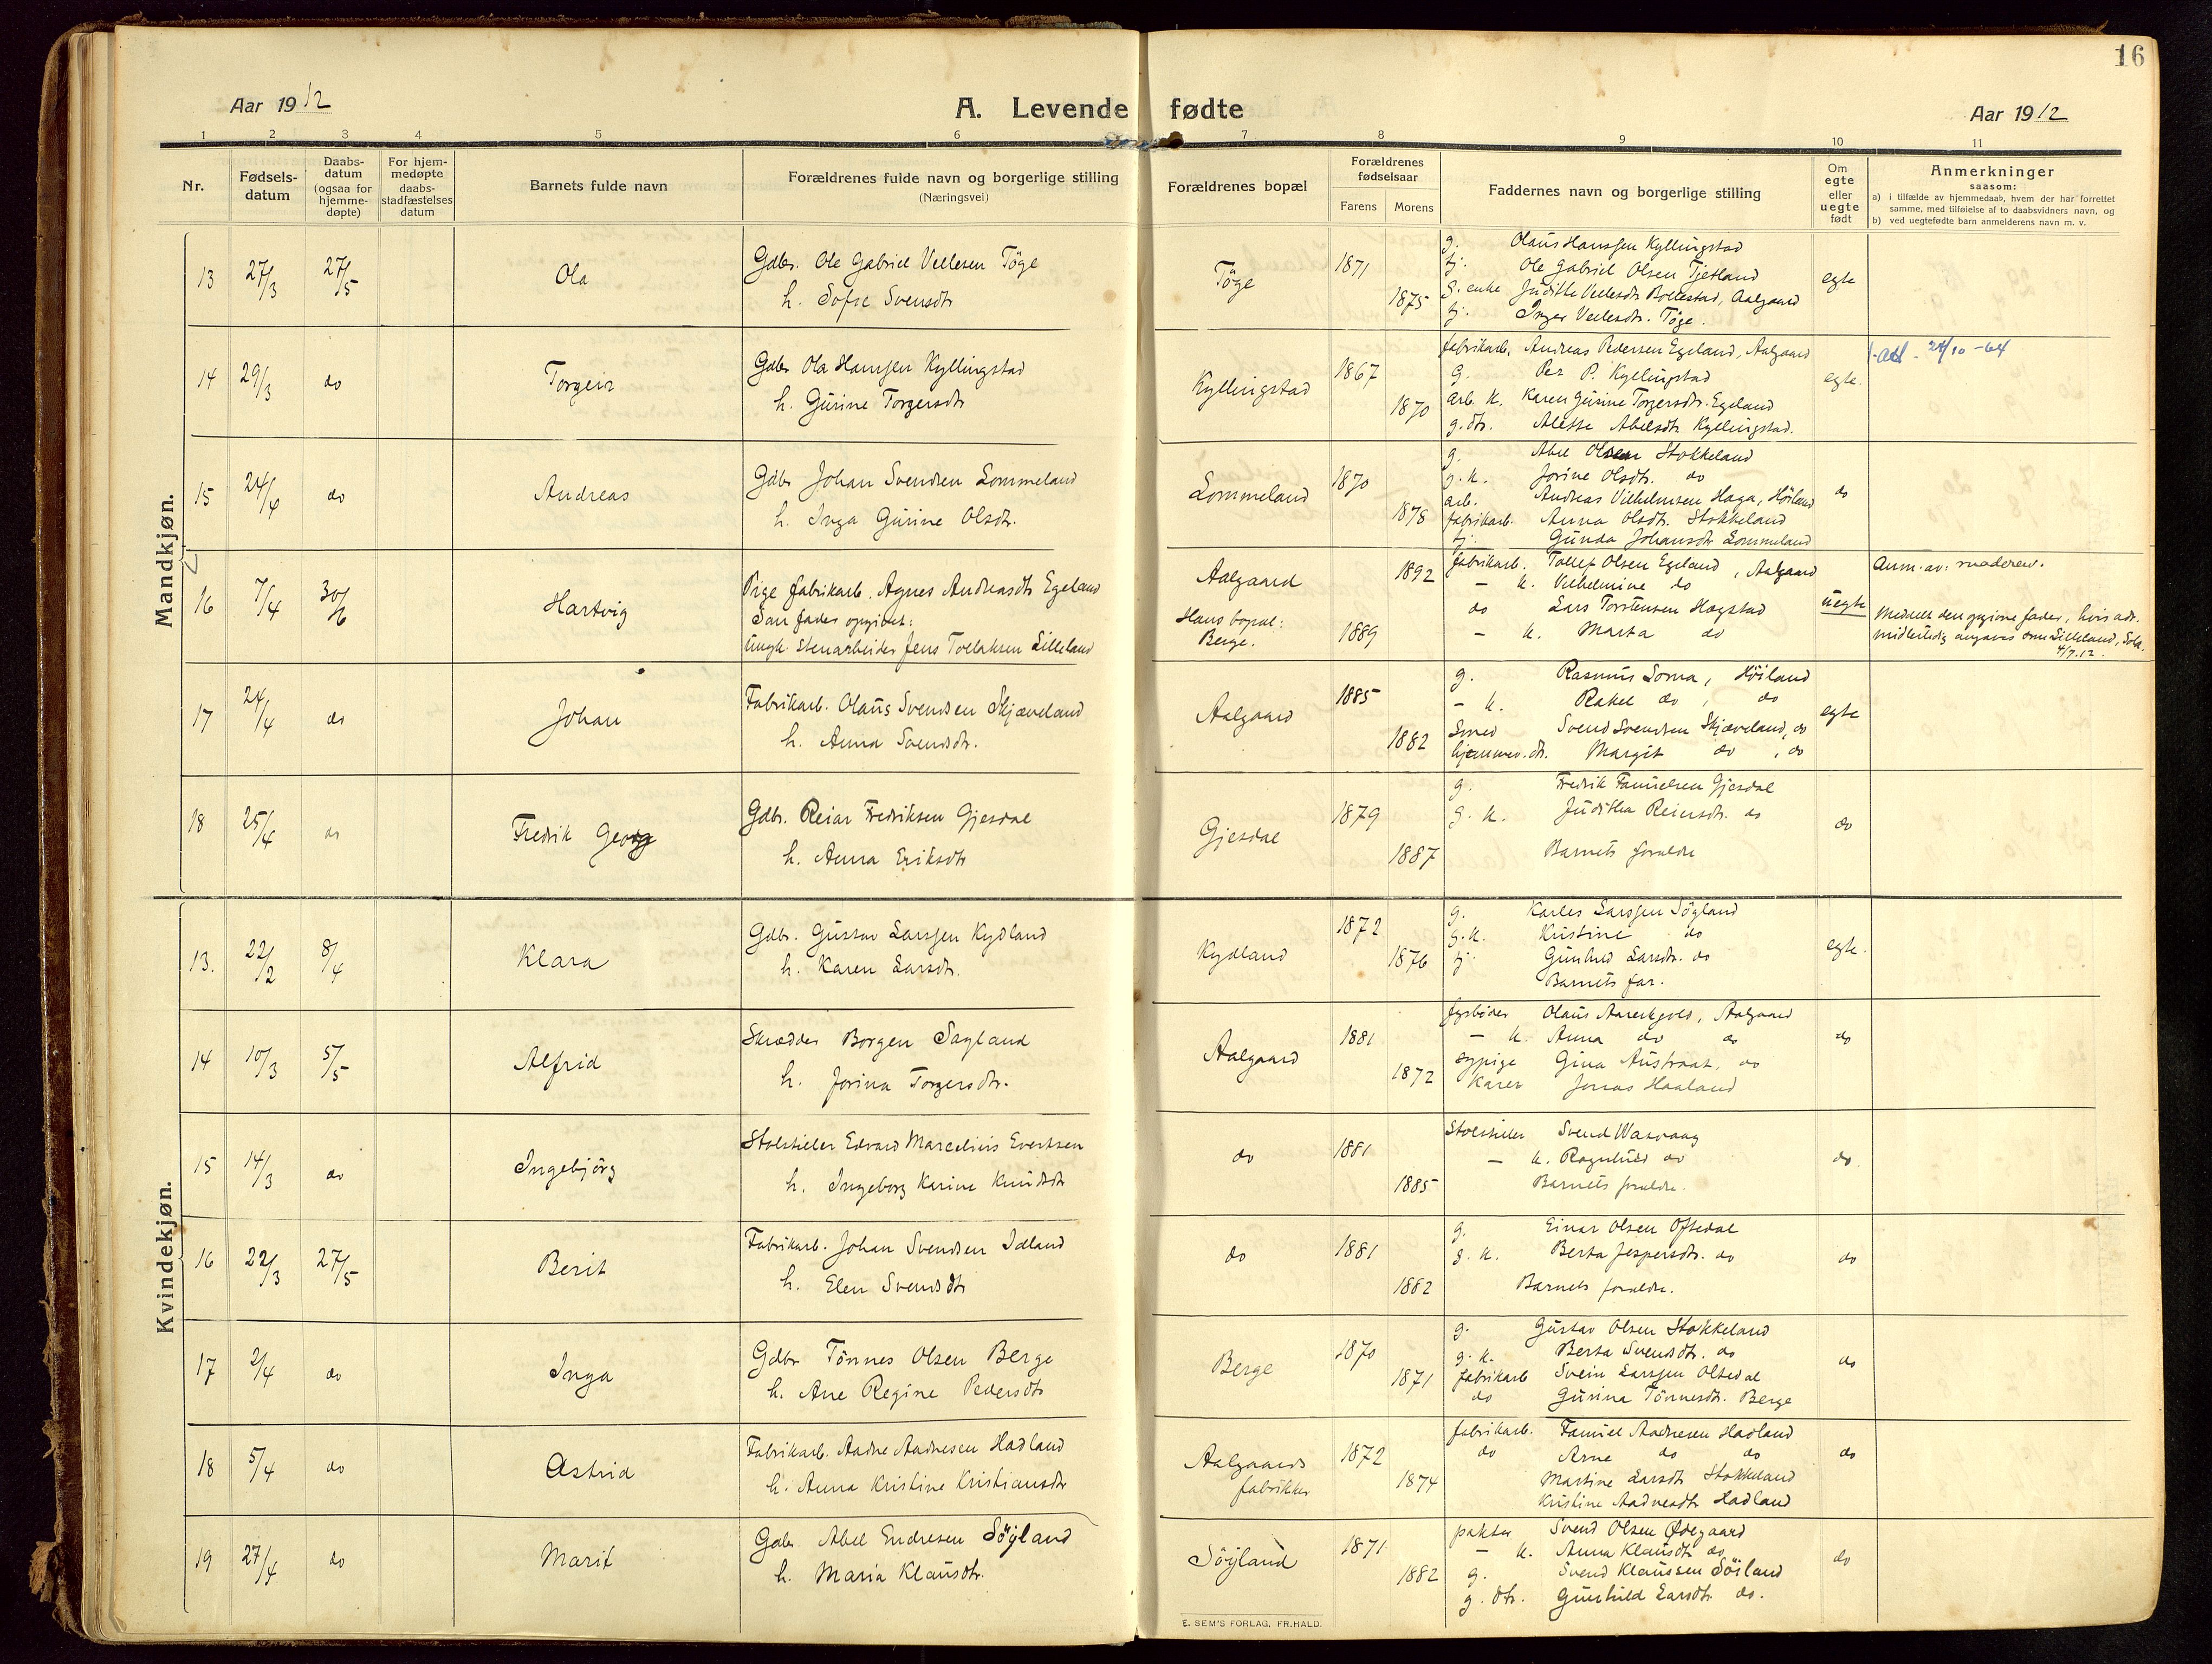 16
Aar 1912
A. Levende fødte
Aar 1912
1 2 3 4 5 6 7 8 9 10 11
Nr.
Fødselsdatum
Daabsdatum (ogsaa for hjemmedøpte)
For hjemmedøpte daabsstadfæstelses datum
Barnets fulde navn
Forældrenes fulde navn og borgerlige stilling
(Næringsvei)
Forældrenes bopæl
Forældrenes fødselsaar
Farens Morens
Faddernes navn og borgerlige stilling
Om egte eller uegte født
Anmerkninger
saasom:
a) i tilfælde av hjemmedaab, hvem der har forrettet
samme, med tilføielse af to daabsvidners navn, og
b) ved uegtefødte barn anmelderens navn m. v.
Mandkjøn.
13 27/3 27/5 Ola
Gdbr. Ole Gabriel Vellesen Töge
h. Sofie Svensdtr
Töge 1871 1875
g. Olaus Hanssen Kyllingstad
tj. Ole Gabriel Olsen Tjetland
g. enke Juditte Vellesdtr Bollestad, Aalgaard
tj. Inger Vellesdtr. Töge.
egte
14 29/3 do Torgeir
Gdbr Ola Hansen Kyllingstad
h. Gurine Torgersdtr
Kyllingstad 1867 1870
fabrikarb. Andreas Pedersen Egeland, Aalgaard
g. Per P. Kyllingstad
arb. k. Karen Gurine Torgersdtr. Egeland
g. dtr. Alette Abelsdtr Kyllingstad.
egte.
24/10 - 64
15 24/4 do Andreas
Gdbr Johan Svendsen Lommeland
h. Inga Gurine Olsdtr.
Lommeland 1870 1878
g. Abel Olsen Stokkeland
g. k. Jorine Olsdtr. do
arb. Andreas Vilhelmsen Haga, Höiland
fabrikarb. Anna Olsdtr. Stokkeland
tj. Gunda Johansdtr Lommeland
do
16 7/4 30/6 Hartvig
Pige fabrikarb. Agnes Andreasdtr Egeland
Som fader opgivet:
ungk. Stenarbeider Jens Tollaksen Lilleland
Aalgaard 1892
Hans bopæl:
Berge. 1889
fabrikarb. Tollef Olsen Egeland, Aalgaard
- k. Vilhelmine do
do Lars Torstensen Hogstad
- k. Marta do
uegte
Anm. av: moderen.
Meddelt den opgivne fader, hvis adr.
midlertidig angaves som Lilleland, Sola.
4/7.12.
17 24/4 do Johan
Fabrikarb. Olaus Svendsen Skjæveland
h. Anna Svendsdtr.
Aalgaard 1885 1882
g. Rasmus Soma, Höiland
- k. Rakel do, do
Smed Svend Svendsen Skjæveland, do
hjemmev. dtr. Margit do, do
egte
18 25/4 do Fredrik Georg
Gdbr. Reiar Fredriksen Gjesdal
h. Anna Eriksdtr
Gjesdal 1879 1887
g. Fredrik Tamielsen Gjesdal
g. k. Juditha Reiersdtr. do
Barnets forældre
do
Kvindekjøn.
13. 22/2 8/4 Klara
Gdbr. Gustav Larssen Kydland
h. Karen Larsdtr.
Kydland 1872 1876
g. Karles Larssen Söyland
g. k. Kristine do
tj. Gunhild Larsdtr. do
Barnets far.
egte.
14 10/3 5/5 Alfrid
Skrædder Borgen Sagland
h. Jorina Torgersdtr.
Aalgaard 1881 1872
fyrböder Olaus Aareskjold, Aalgaard
- k. Anna do do
sypige Gina Austraat, do
Jonas Haaland
do
15 14/3 do Ingebjörg
Stolstieler Edvard Marcelius Evertsen
h. Ingeborg Karine Knudsdtr
do 1881 1885
Stolstieler Svend Wasvaag
- k. Ragnhild do
Barnets forældre.
do.
16 22/3 27/5 Berit
Fabrikarb. Johan Svendsen Idland
h. Elen Svendsdtr
do 1881 1882
g. Einar Olsen Oftedal
g. k. Berta Jespersdtr. do
Barnets forældre.
do
17 2/4 do Inga
Gdbr Tönnes Olsen Berge
h. Ane Regine Pedersdtr
Berge 1870 1871
g. Gustav Olsen Stokkeland
g. k. Berta Svendsdtr. do
fabrikarb Svein Larssen Oltedal
do Gurina Tönnesdtr. Berge
do
18 5/4 do Astrid
Fabrikarb. Aadne Aadnesen Hadland
h. Anna Kristine Kristiansdtr
Aalgaards fabrikker 1872 1874
fabrikarb. Tamiel Aadnesen Hadland
do Arne do do
Martine Larsdtr Stokkeland
Kristine Aadnesdtr Hadland
do
19 27/4 do Marit
Gdbr. Abel Endresen Söyland
h. Maria Klausdtr.
Söyland 1871 1882
pakter Svend Olsen Ødegaard
- k. Anna Klausdtr do
g. Svend Klaussen Söiland
g. dtr. Gunhild Larsdtr do.
do
E. SEM'S FORLAG, FR.HALD.